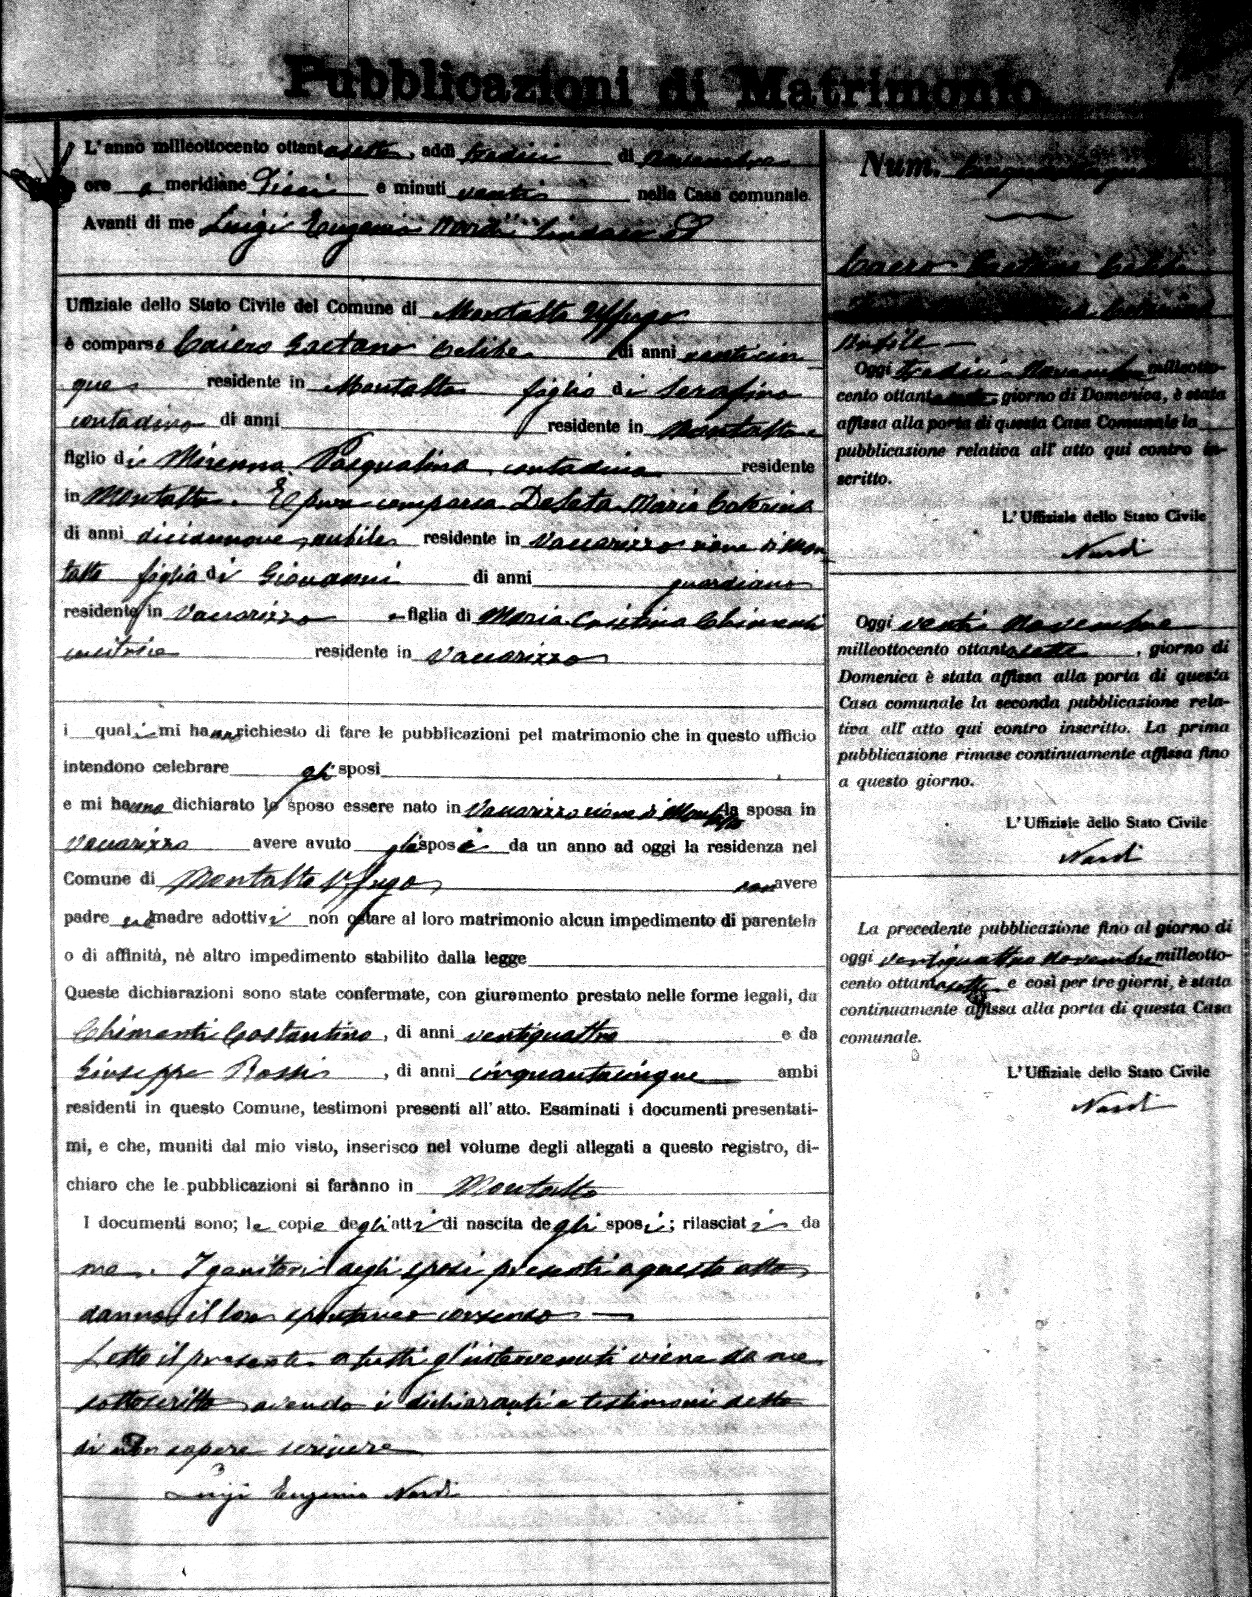 Pubblicazioni di Matrimonio
L'anno milleottocento ottantasette, addì tredici di Novembre
ore a meridiane Dieci e minuti venti nella Casa comunale.
Avanti di me Luigi Eugenio Nardi Sindaco ed
Uffiziale dello Stato Civile del Comune di Montalto Uffugo
è comparso Caiero Gaetano celibe di anni venticin
que residente in Montalto figlio di Serafino
contadino di anni residente in Montalto e
figlio di Mirenna Pasqualina, contadina residente
in Montalto. E pure comparsa DeSeta Maria Caterina
di anni diciannove, nubile residente in Vaccarizzo rione di Mon
talto figlia di Giovanni di anni guardiano
residente in Vaccarizzo e figlia di Maria Cristina Chimenti
cucitrice residente in Vaccarizzo
i quali mi hanno richiesto di fare le pubblicazioni pel matrimonio che in questo ufficio
intendono celebrare gli sposi
e mi hanno dichiarato lo sposo essere nato in Vaccarizzo rione di Montalto la sposa in
Vaccarizzo avere avuto gli sposi da un anno ad oggi la residenza nel
Comune di Montalto Uffugo non avere
padre nè madre adottivi non ostare al loro matrimonio alcun impedimento di parentela
o di affinità, nè altro impedimento stabilito dalla legge
Queste dichiarazioni sono state confermate, con giuramento prestato nelle forme legali, da
Chimenti Costantino, di anni ventiquattro e da
Giuseppe Rossi, di anni cinquantacinque ambi
residenti in questo Comune, testimoni presenti all' atto. Esaminati i documenti presentati-
mi, e che, muniti dal mio visto, inserisco nel volume degli allegati a questo registro, di-
chiaro che le pubblicazioni si faranno in Montalto
I documenti sono; le copie degli atti di nascita degli sposi; rilasciati da
me. I genitori degli sposi presenti a questo atto
danno il loro spontaneo consenso
Letto il presente a tutti gl'intervenuti viene da me
sottoscritto avendo i dichiaranti e testimoni detto
di non sapere scrivere
Luigi Eugenio Nardi
Num.
Caiero Gaetano Celibe
Caterina
Nubile
Oggi tredici Novembre milleotto-
cento ottantasette giorno di Domenica, è stata
affissa alla porta di questa Casa Comunale la
pubblicazione relativa all' atto qui contro in-
scritto.
L' Uffiziale dello Stato Civile
Nardi
Oggi venti Novembre
milleottocento ottantasette, giorno di
Domenica è stata affissa alla porta di questa
Casa comunale la seconda pubblicazione rela-
tiva all' atto qui contro inscritto. La prima
pubblicazione rimase continuamente affissa fino
a questo giorno.
L' Uffiziale dello Stato Civile
Nardi
La precedente pubblicazione fino al giorno di
oggi ventiquattro Novembre milleotto-
cento ottantasette e così per tre giorni, è stata
continuamente affissa alla porta di questa Casa
comunale.
L' Uffiziale dello Stato Civile
Nardi